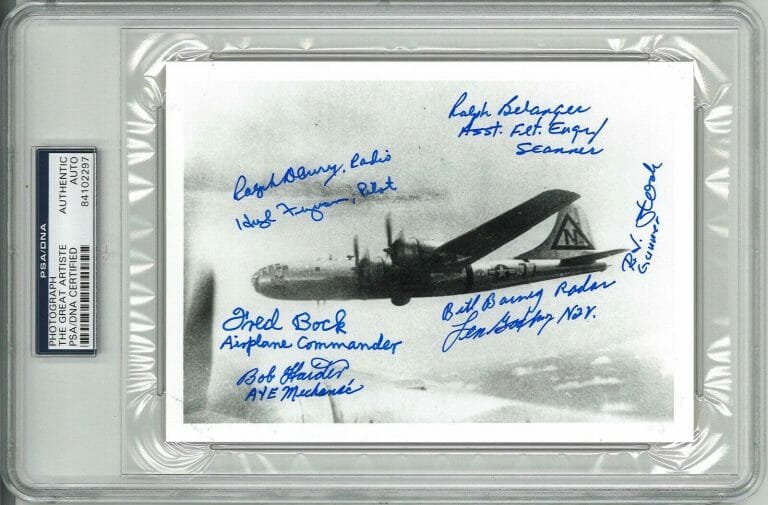 PSA/DNA
PHOTOGRAPH
THE GREAT ARTISTE
PSA/DNA CERTIFIED
AUTHENTIC
AUTO
84102297
Ralph Belanger
Asst. Flt. Engr/
Scanner
Ralph D Curry, Radio
Hugh Ferguson, Pilot
R.V.
Gunner
N
77
Fred Bock
Airplane Commander
Bill Barney Radar
Len Godfrey Nav.
Bob
A/E Mechanic